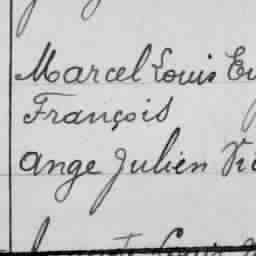 Marcel Louis Eu
François
Ange Julien Vi